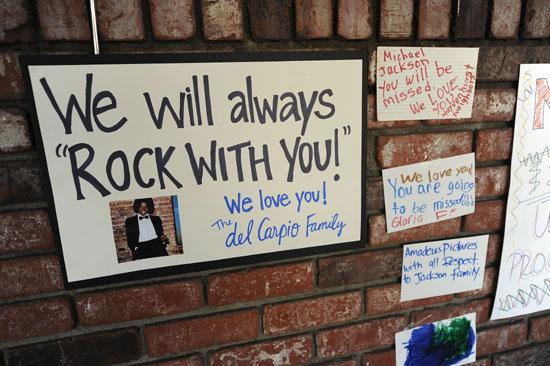 We will always
"ROCK WITH YOU!"
We love you!
The del Carpio Family
Michael
Jackson
you will be
missed.
We LOVE
YOU!
We love you!
You are going
to be missed!!
Gloria F
Amadeus Pictures
with all Respect
to Jackson family